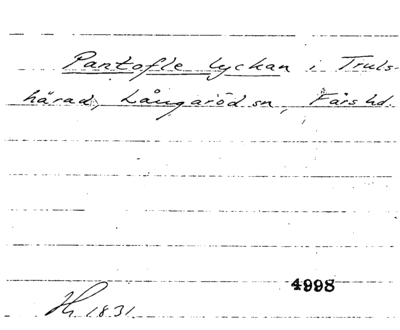 Pantofle lyckan i Truls-
härad, Långaröd sn, Färs hd.
4998
1831